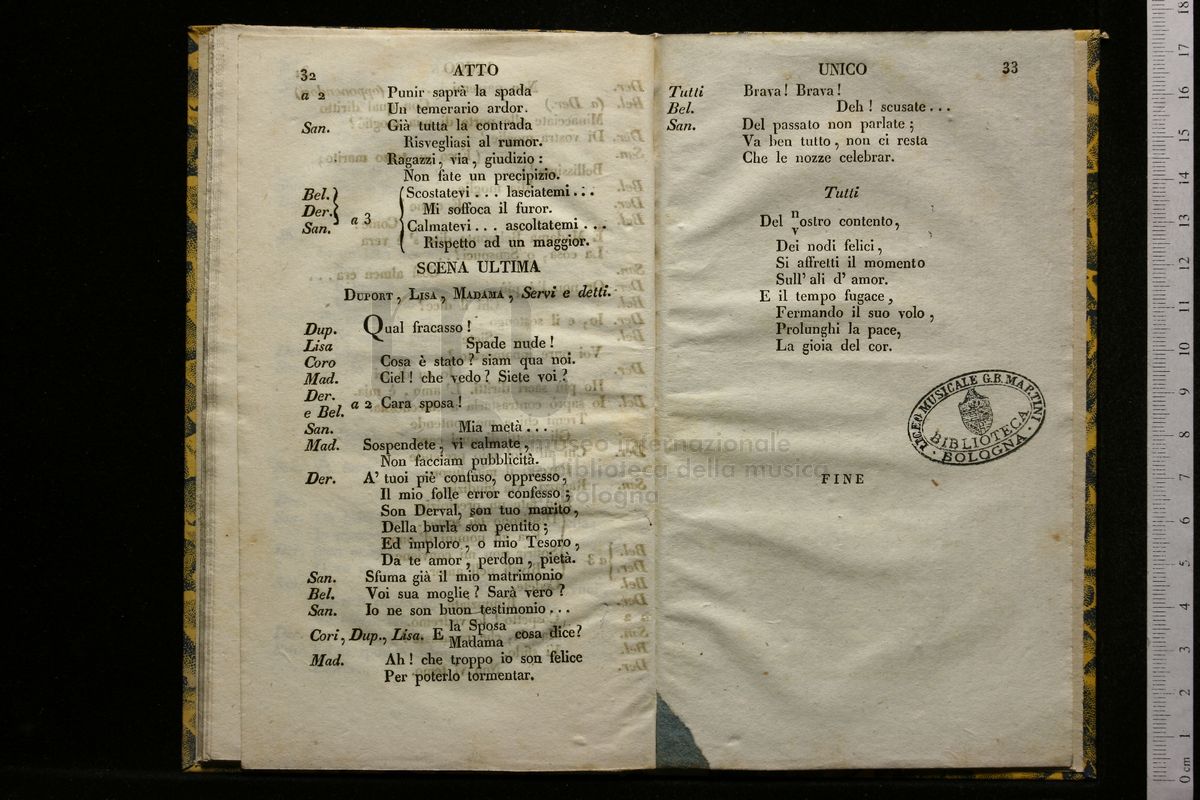 32 ATTO
a 2 Punir saprà la spada
Un temerario ardor.
San. Già tutta la contrada
Risvegliasi al rumor.
Ragazzi, via, giudizio:
Non fate un precipizio.
Bel. Scostatevi... lasciatemi...
Der. Mi soffoca il furor.
a 3
San. Calmatevi... ascoltatemi...
Rispetto ad un maggior.
SCENA ULTIMA
DUPORT, LISA, MADAMA, Servi e detti.
Dup. Qual fracasso!
Lisa Spade nude!
Coro Cosa è stato? siam qua noi.
Mad. Ciel! che vedo? Siete voi?
Der.
e Bel. a 2 Cara sposa!
San. Mia metà...
Mad. Sospendete, vi calmate,
Non facciam pubblicità.
Der. A' tuoi piè confuso, oppresso,
Il mio folle error confesso;
Son Derval, son tuo marito,
Della burla son pentito;
Ed imploro, o mio Tesoro,
Da te amor, perdon, pietà.
San. Sfuma già il mio matrimonio
Bel. Voi sua moglie? Sarà vero?
San. Io ne son buon testimonio...
Cori, Dup., Lisa. E la Sposa cosa dice?
Madama
Mad. Ah! che troppo io son felice
Per poterlo tormentar.
UNICO 33
Tutti Brava! Brava!
Bel. Deh! scusate...
San. Del passato non parlate;
Va ben tutto, non ci resta
Che le nozze celebrar.
Tutti
n
Del ostro contento,
v
Dei nodi felici,
Si affretti il momento
Sull' ali d' amor.
E il tempo fugace,
Fermando il suo volo,
Prolunghi la pace,
La gioia del cor.
LICEO MUSICALE G.B. MARTINI
BIBLIOTECA
· BOLOGNA ·
FINE
museo internazionale
biblioteca della musica
bologna
0 cm 1 2 3 4 5 6 7 8 9 10 11 12 13 14 15 16 17 18